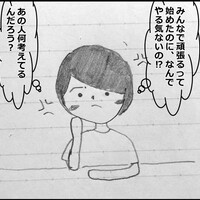 みんなで頑張るって
始めたのに、なんで
やる気ないの!?
あの人何考えてる
んだろう?